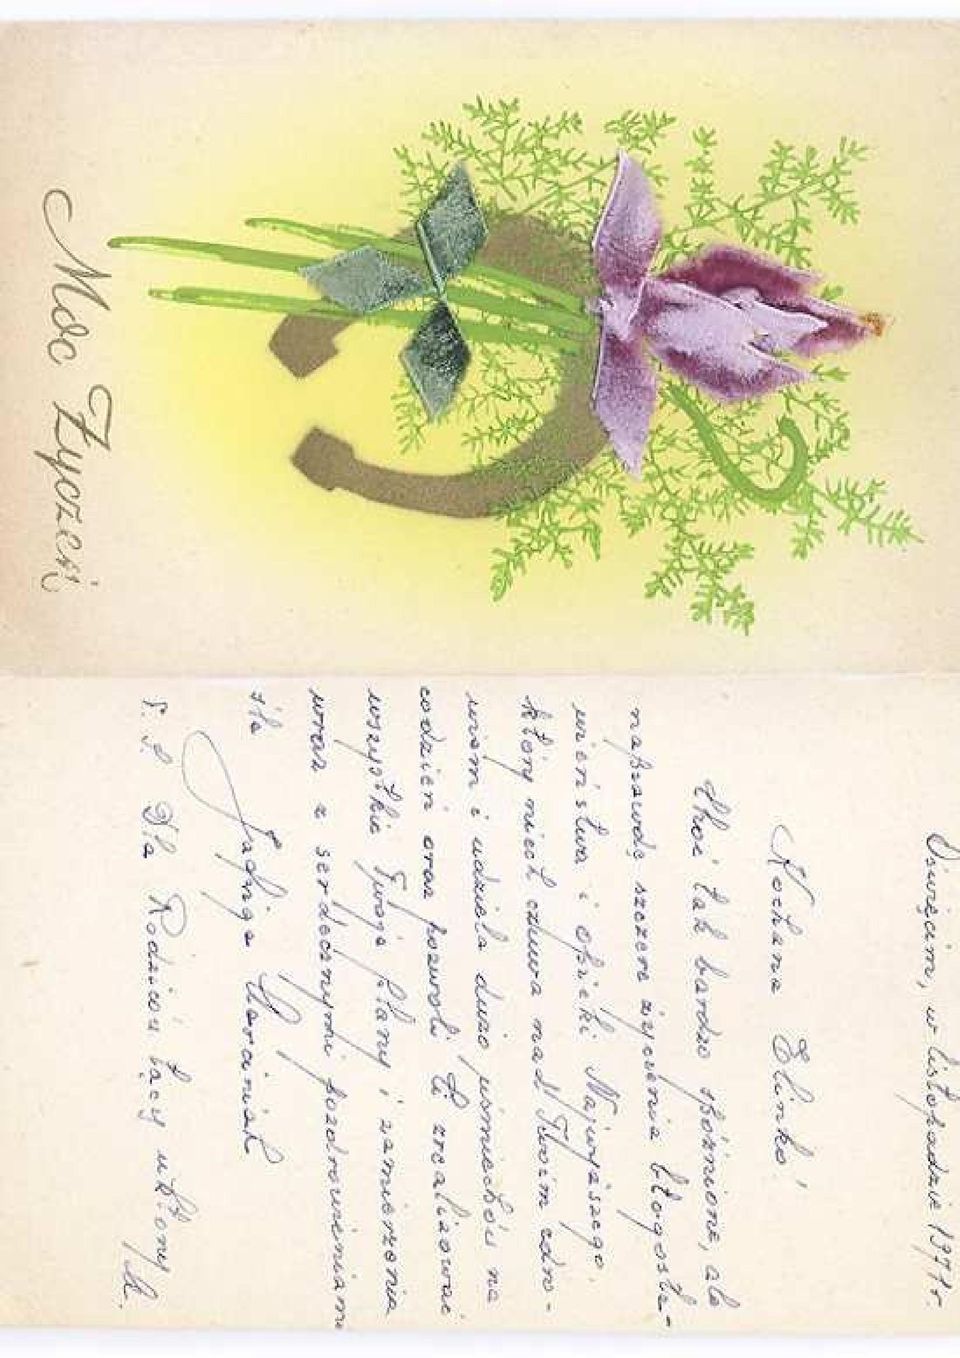 Moc Życzeń
Oświęcim, w listopadzie 1971 r.
Kochana Elinko!
Choć tak bardzo spóźnione, ale
naprawdę szczere życzenia błogosła-
wieństwa i opieki Najwyższego,
który niech czuwa nad Twoim zdro-
wiem i udziela dużo uśmiechów na
codzień oraz pozwoli Ci zrealizować
wszystkie Twoje plany i zamierzenia
wraz z serdecznymi pozdrowieniami
śle
Jadwiga
P.S. Dla Rodziców łączę ukłony